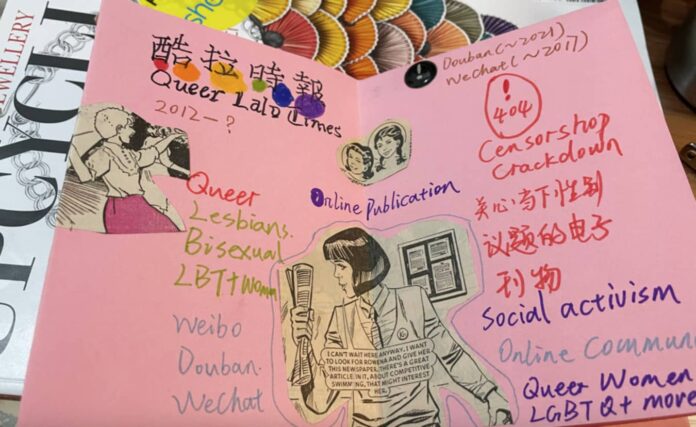 WELLERY
UPCYCLI
酷拉時報
Queer Lala Times
2012-?
Queer
Lesbians.
Bisexual
LBT+ Women
Weibo
Douban.
WeChat
Online Publication
I CAN'T WAIT HERE ANYWAY. I WANT
TO LOOK FOR ROWENA AND GIVE HER
THIS NEWSPAPER. THERE'S A GREAT
ARTICLE IN IT, ABOUT COMPETITIVE
SWIMMING, THAT MIGHT INTEREST
HER.
Douban(~2021)
WeChat(~2017)
!
404
Censorshop
Crackdown
关心当下性别
议题的电子
刊物
Social activism
Online Commun
Queer Women
LGBTQ+ more